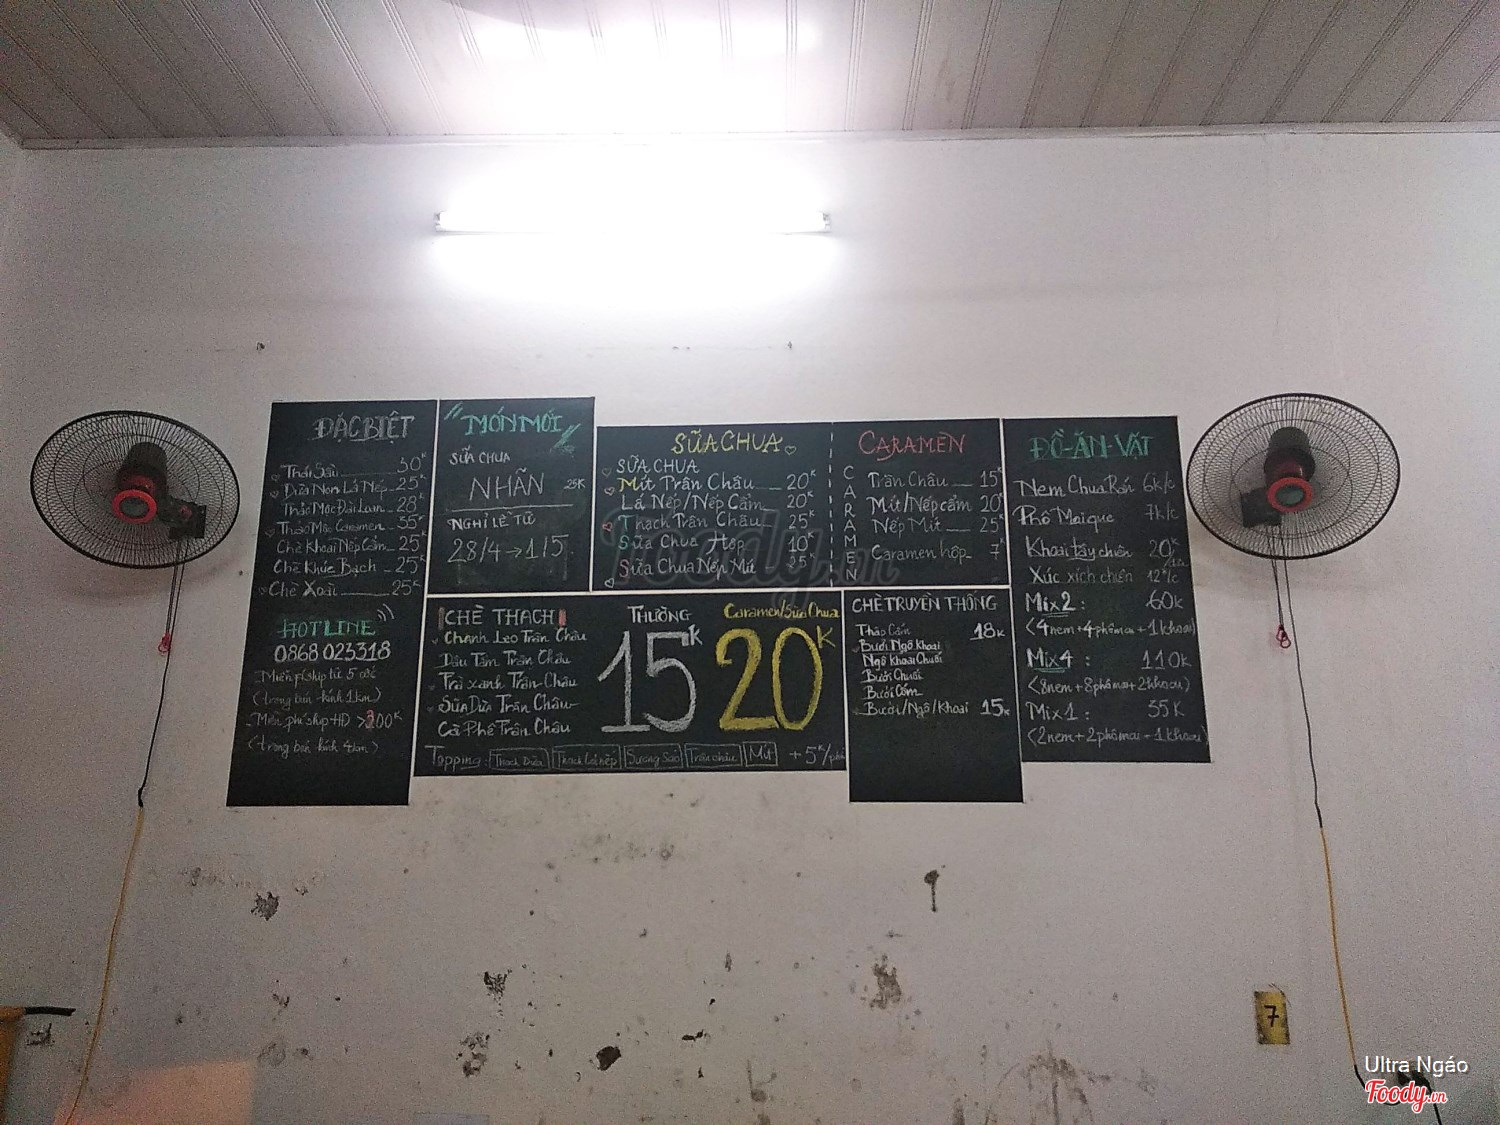 ĐẶC BIỆT
Thái Sầu 30K
Dừa Non Lá Nếp 25K
Thảo Mộc Đài Loan 28K
Thảo Mộc Caramen 35K
Chè Khoai Nếp Cẩm 25K
Chè Khúc Bạch 25K
Chè Xoài 25K
HOTLINE
0868 023318
Miễn phí ship từ 5 cốc
(trong bán kính 1km)
Miễn phí ship HĐ >200K
(trong bán kính 4km)
MÓN MỚI
SỮA CHUA
NHÃN 25K
NGHỈ LỄ TỪ
28/4 → 1/5
SỮA CHUA
SỮA CHUA
Mít Trân Châu 20K
Lá Nếp/Nếp Cẩm 20K
Thạch Trân Châu 25K
Sữa Chua Hộp 10K
Sữa Chua Nếp Mít 25K
CARAMEN
CARAMEN
Trân Châu 15K
Mít/Nếp cẩm 20K
Nếp Mít 25K
Caramen hộp 7K
CHÈ THẠCH
Chanh Leo Trân Châu
Dâu Tằm Trân Châu
Trà xanh Trân Châu
Sữa Dừa Trân Châu
Cà Phê Trân Châu
THƯỜNG
15K
Caramen/Sữa Chua
20K
Topping: Thạch Dừa Thạch Lá nếp Sương Sáo Trân châu Mít +5K/phần
CHÈ TRUYỀN THỐNG
Thập Cẩm 18K
Bưởi Ngô Khoai
Ngô Khoai Chuối
Bưởi Chuối
Bưởi Cốm
Bưởi/Ngô/Khoai 15K
ĐỒ ĂN VẶT
Nem Chua Rán 6k/c
Phô Mai que 7k/c
Khoai tây chiên 20K
Xúc xích chiên 12K/c
Mix2: 60K
(4nem+4phômai+1khoai)
Mix4: 110K
(8nem+8phômai+2khoai)
Mix1: 35K
(2nem+2phômai+1khoai)
7
Foody.vn
Ultra Ngáo
Foody.vn